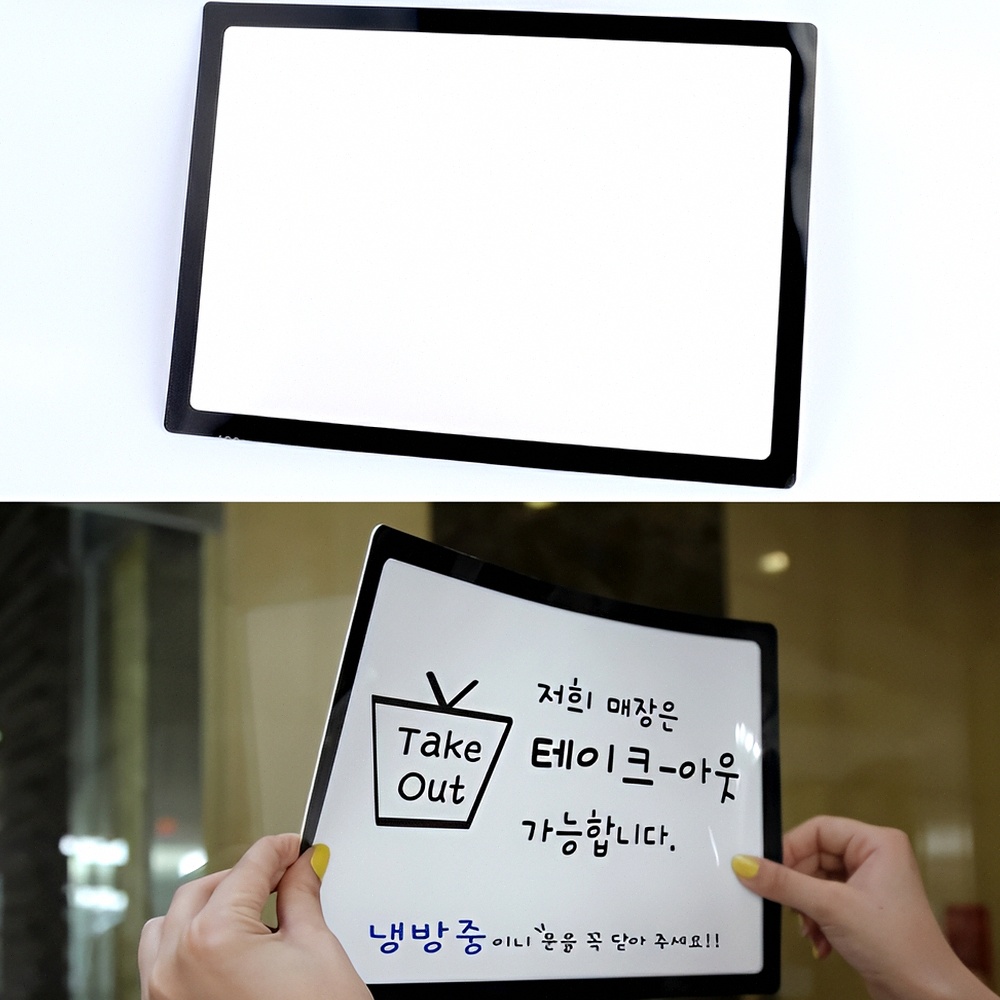 Take
Out
저희 매장은
테이크-아웃
가능합니다.
냉방중이니 문을 꼭 닫아 주세요!!